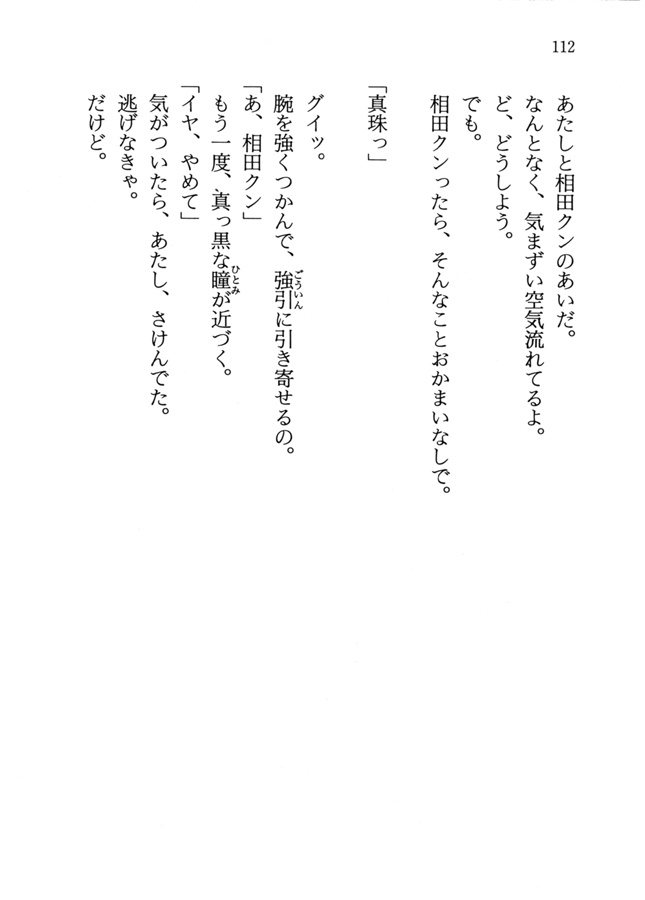 112
あたしと相田クンのあいだ。
なんとなく、気まずい空気流れてるよ。
ど、どうしよう。
でも。
相田クンったら、そんなことおかまいなしで。
「真珠っ」
グイッ。
腕を強くつかんで、強引に引き寄せるの。
ごういん
「あ、相田クン」
もう一度、真っ黒な瞳が近づく。
ひとみ
「イヤ、やめて」
気がついたら、あたし、さけんでた。
逃げなきゃ。
だけど。